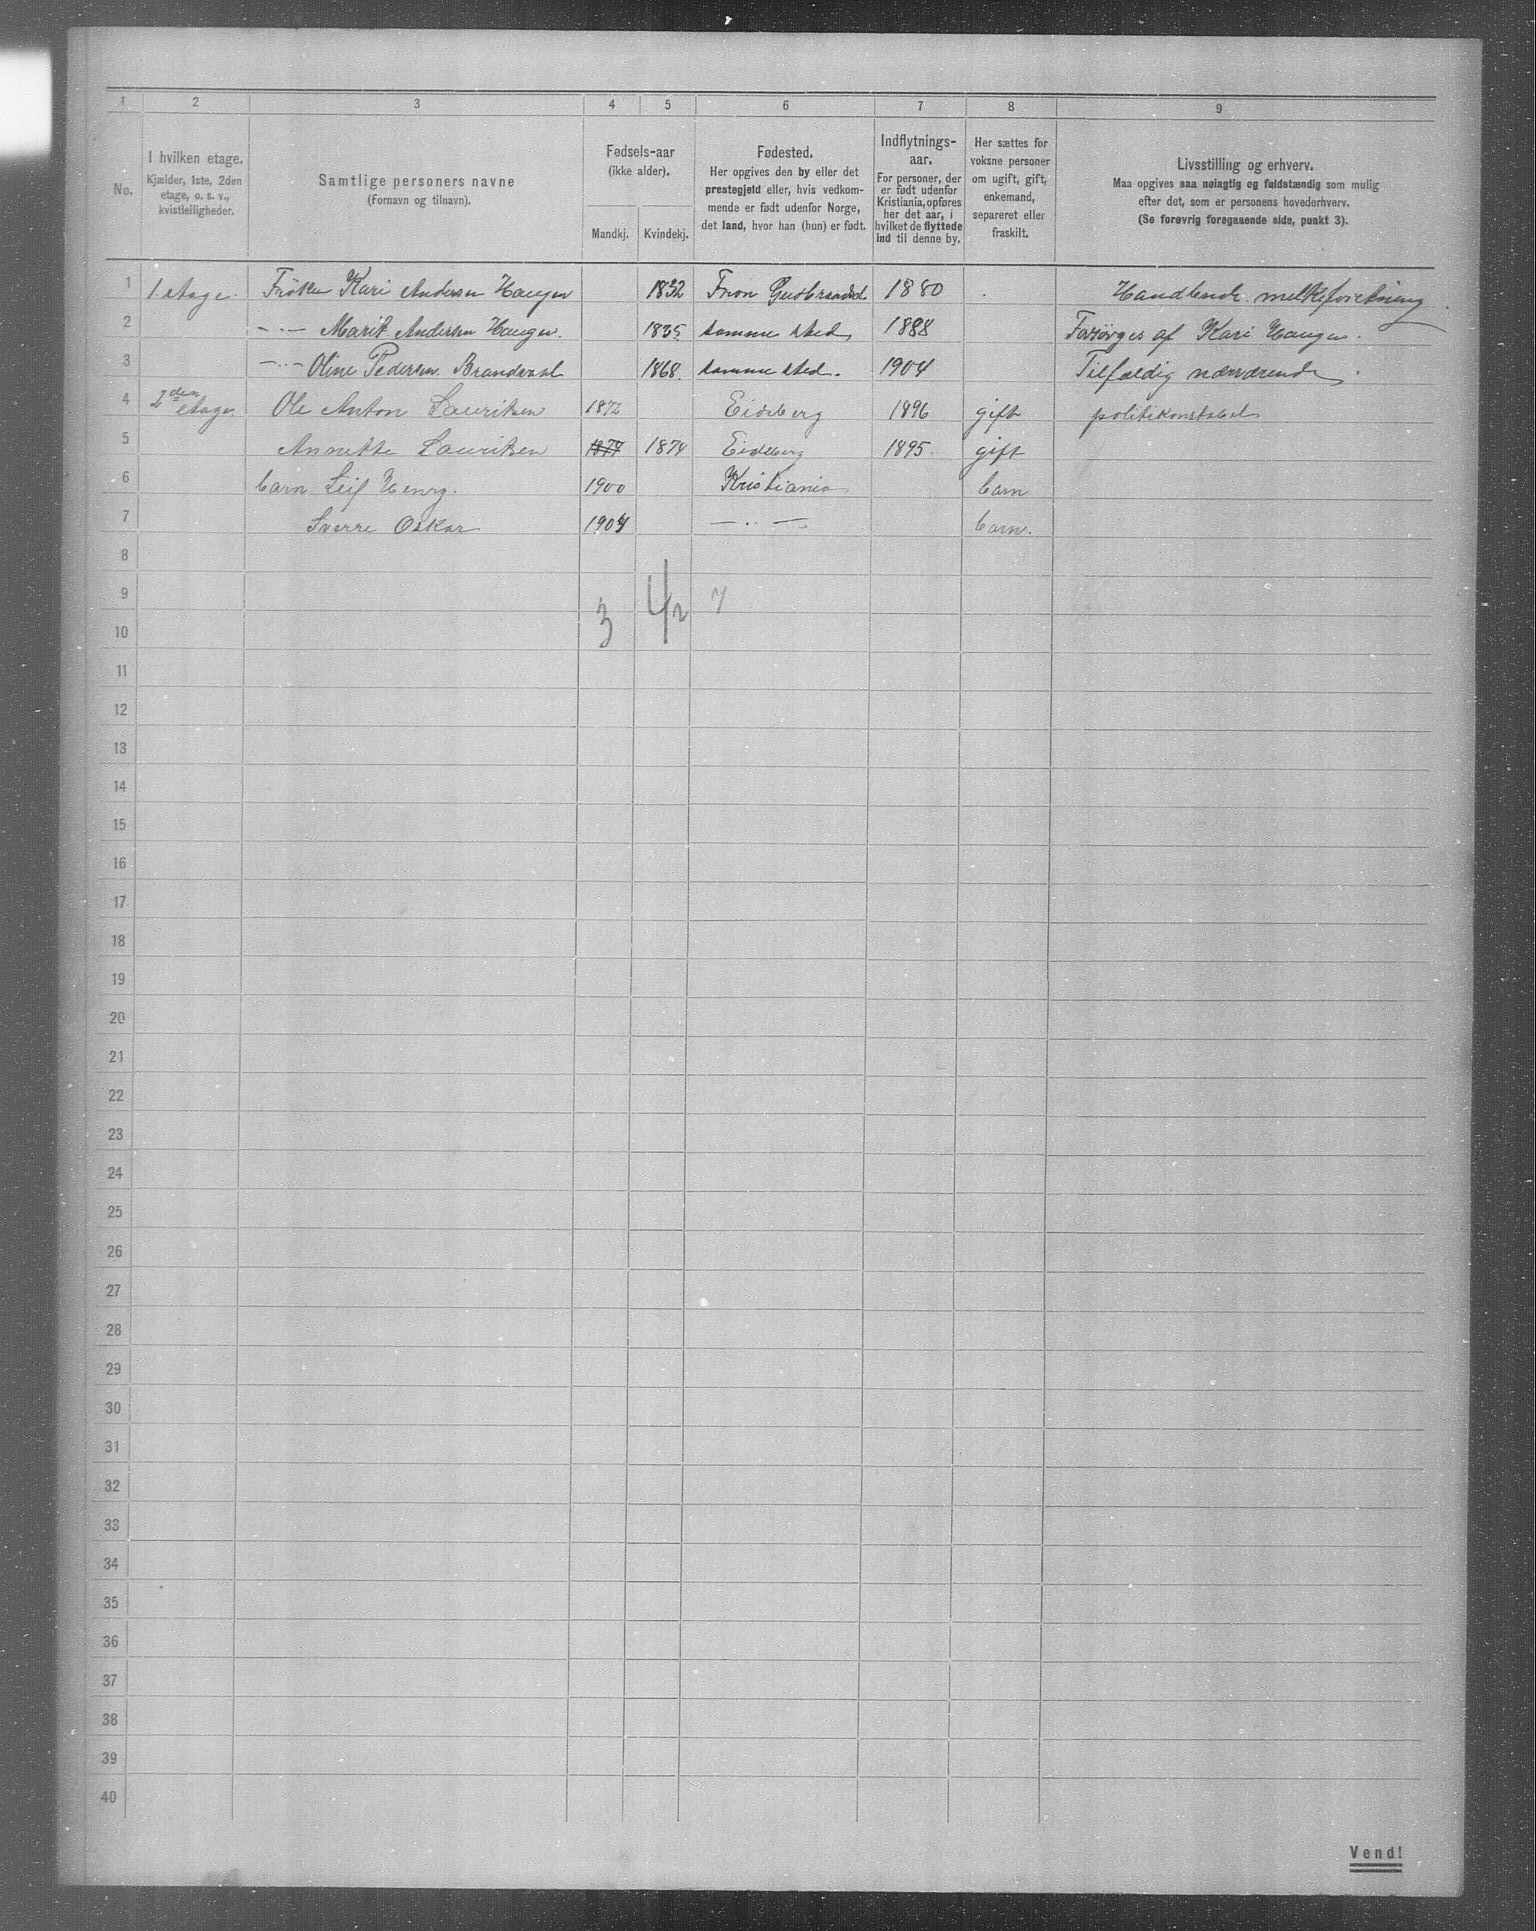 1 2 3 4 5 6 7 8 9
No.
I hvilken etage.
Kjælder, 1ste, 2den
etage, o. s. v.,
kvistleiligheder.
Samtlige personers navne
(Fornavn og tilnavn).
Fødsels-aar
(ikke alder).
Mandkj. Kvindekj.
Fødested.
Her opgives den by eller det
prestegjeld eller, hvis vedkom-
mende er født udenfor Norge,
det land, hvor han (hun) er født.
Indflytnings-
aar.
For personer, der
er født udenfor
Kristiania, opføres
her det aar, i
hvilket de flyttede
ind til denne by.
Her sættes for
voksne personer
om ugift, gift,
enkemand,
separeret eller
fraskilt.
Livsstilling og erhverv.
Maa opgives saa nøiagtig og fuldstændig som mulig
efter det, som er personens hovederhverv.
(Se forøvrig foregaaende side, punkt 3).
1 1. etage. Frøken Kari Andersen Haugen 1832 Fron Gudbrandsd. 1880 Handlende. melkeforretning
2 — ·· — Marit Andersen Haugen. 1835. samme sted 1888 Forsørges af Kari Haugen.
3 — ·· — Oline Pedersen Brandvol 1868. samme sted. 1904 Tilfældig nærværende.
4 2den etage Ole Anton Lauritsen 1872 Eidsberg 1896 gift politikonstabel
5 Annette Lauritsen 1874 1874 Eidsberg 1895. gift
6 barn Leif Henry. 1900 Kristiania barn
7 Sverre Oskar 1904 — ·· — barn.
8
9
3 4 2 7
10
11
12
13
14
15
16
17
18
19
20
21
22
23
24
25
26
27
28
29
30
31
32
33
34
35
36
37
38
39
40
Vend!